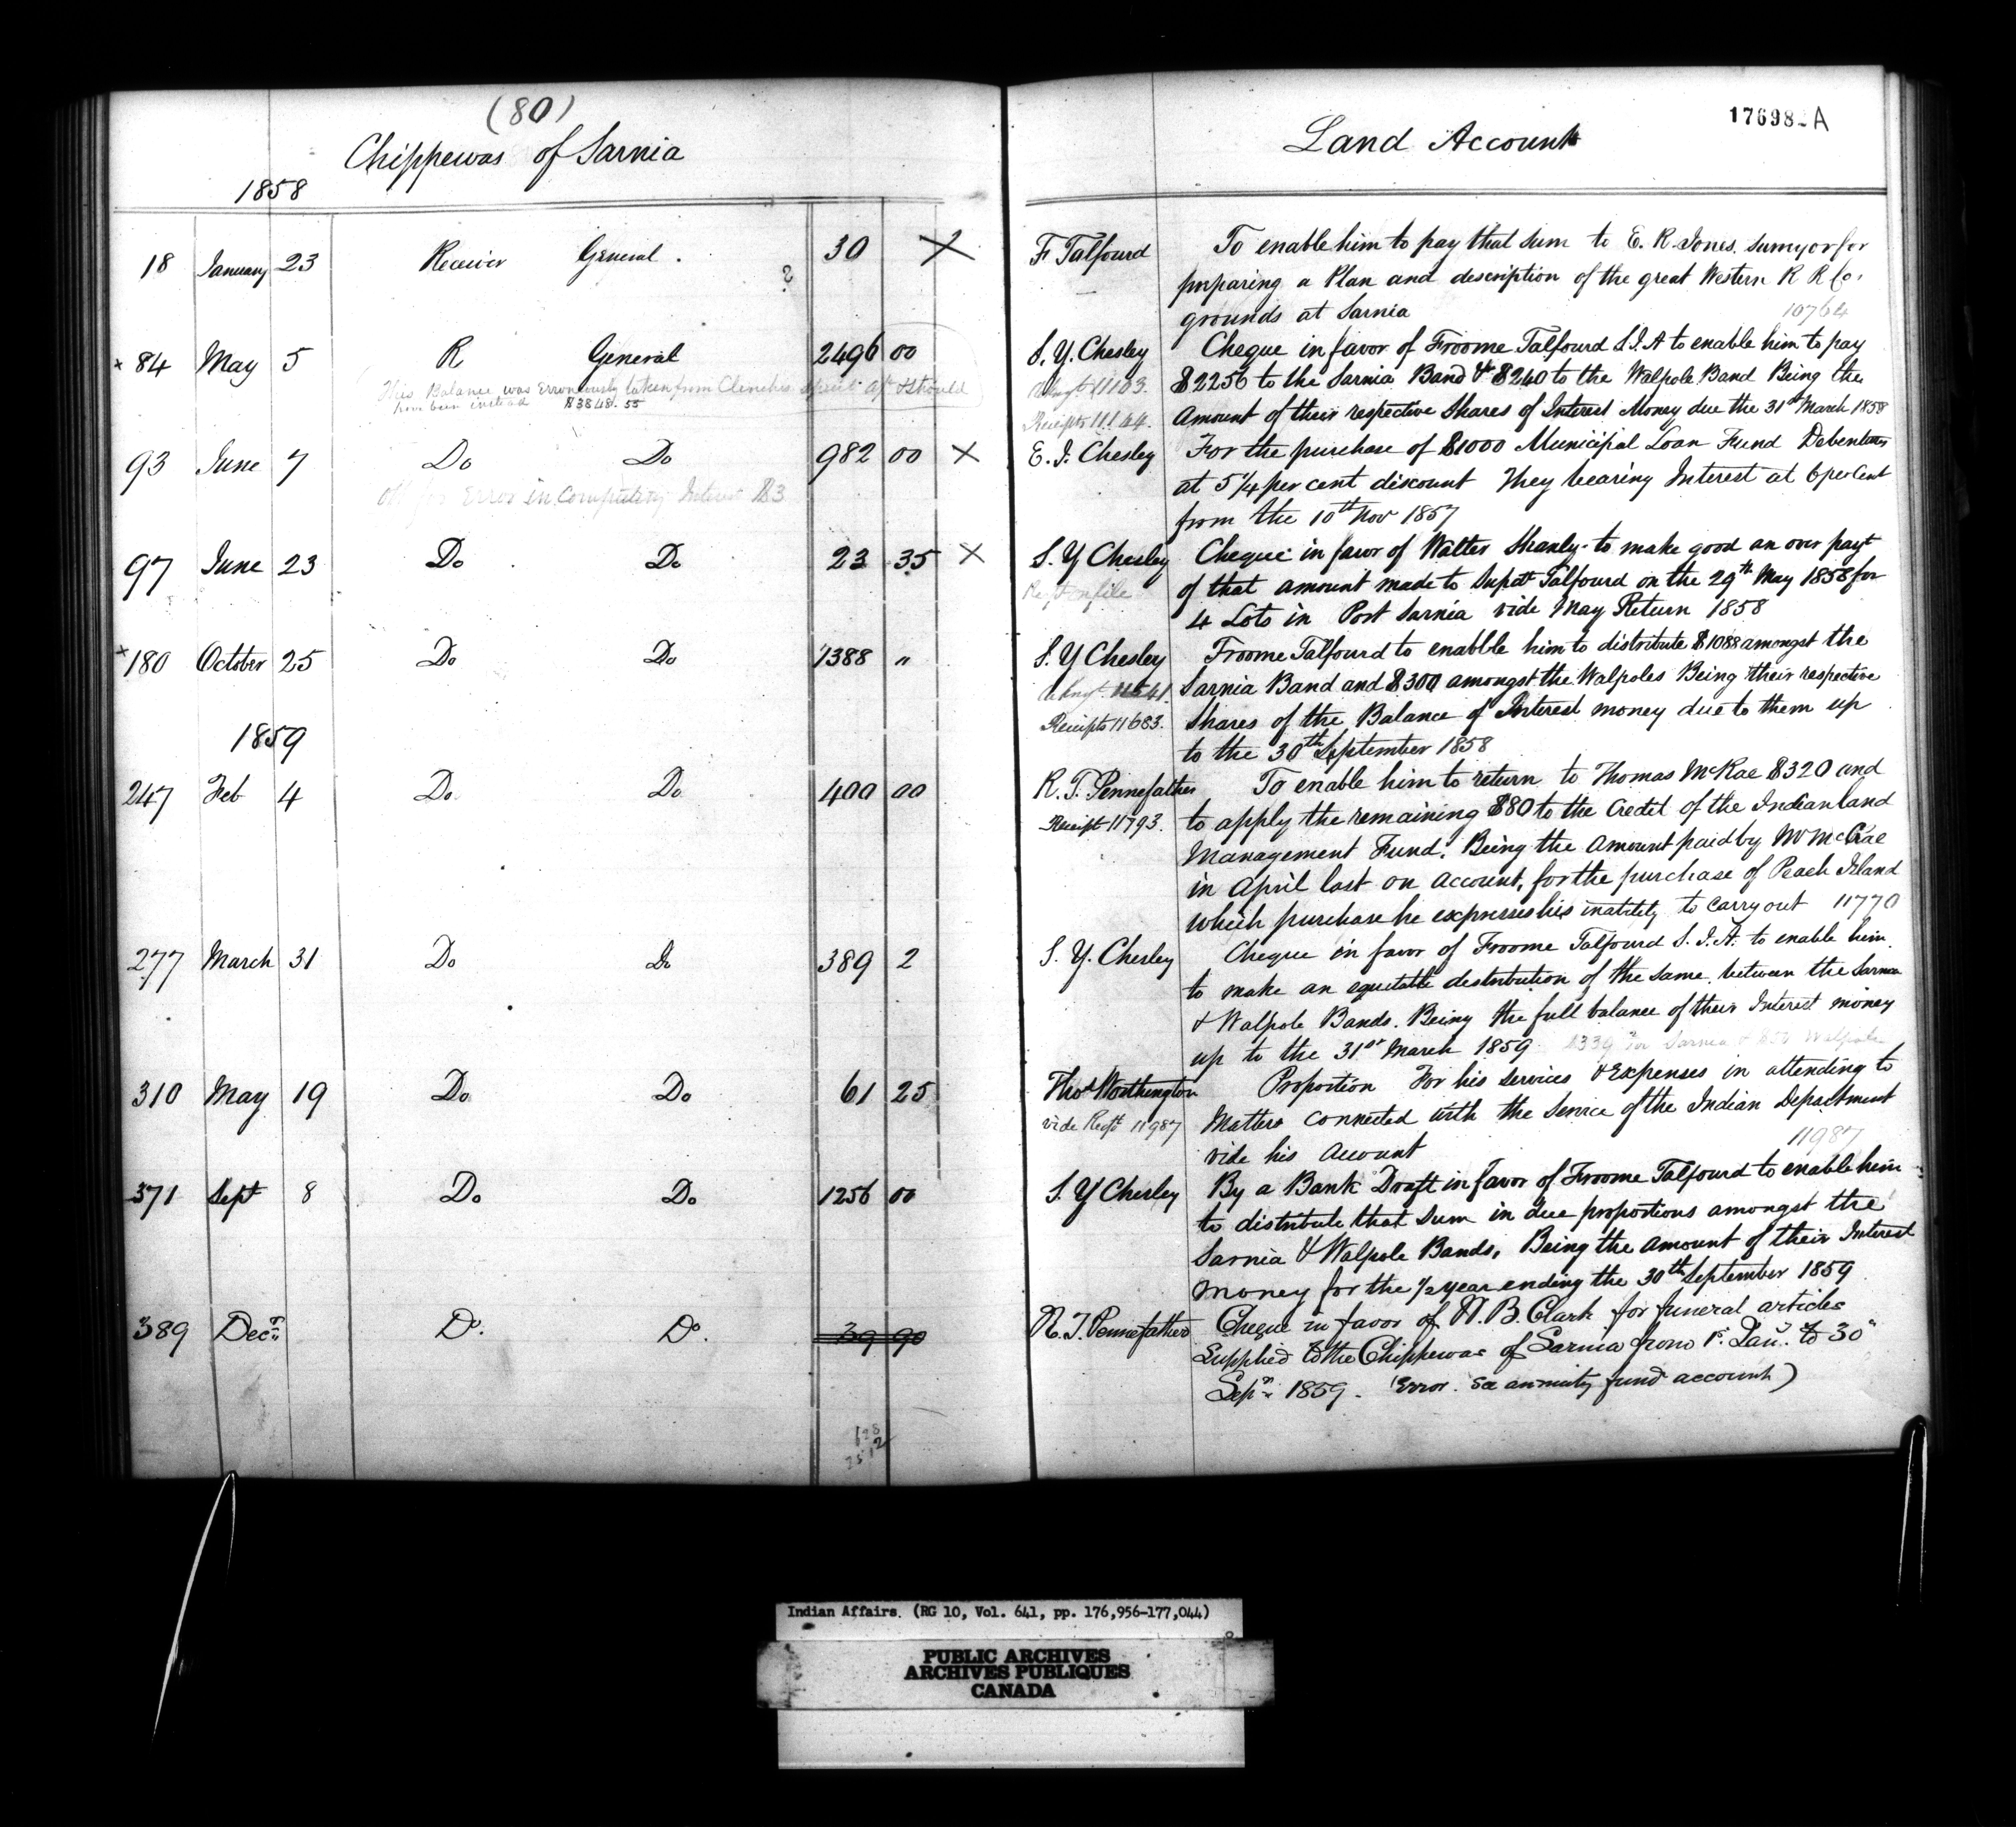 (80)
Chippewas of Sarnia
1858
18 January 23 Receiver General . 30 X
?
84 May 5 R General 2496 00
This Balance was Erroneously taken from Clenches should
have been instead $3848.55
93 June 7 Do Do 982 00 X
Error in Computing Interest $3
97 June 23 Do Do 23 35 X
180 October 25 Do Do 1388 "
1859
247 Feb 4 Do Do 400 00
277 March 31 Do Do 389 2
310 May 19 Do Do 61 25
371 Sept 8 Do Do 1256 00
389 Decr Do. Do. 39 90
Land Account
176982A
F Talfourd To enable him to pay that sum to E. R. Jones. survyor for
preparing a Plan and description of the great Western R R Co.
grounds at Sarnia 10764
S. Y. Chesley Cheque in favor of Froome Talfourd S.I.A to enable him to pay
$2256 to the Sarnia Band & $240 to the Walpole Band Being the
Receipts 11164. Amount of their respective Shares of Interest Money due the 31st March 1858
E. I. Chesley For the purchase of $1000 Municipal Loan Fund Debentures
at 5 1/4 per cent discount They bearing Interest at 6 per Cent
from the 10th Nov 1857
S. Y Chesley Cheque in favor of Walter Shanly to make good an over payt
of that amount made to Supdt Talfourd on the 29th May 1858 for
4 Lots in Port Sarnia vide May Return 1858
S. Y Chesley Froome Talfourd to enabble him to distribute $1088 amongst the
11541. Sarnia Band and $300 amongst the Walpoles Being their respective
Receipts 11683. Shares of the Balance of Interest money due to them up
to the 30th September 1858
R. T. Pennefather To enable him to return to Thomas McKae $320 and
Receipt 11793. to apply the remaining $80 to the Credit of the Indian land
Management Fund. Being the Amount paid by Mr McCrae
in April last on Account, for the purchase of Peach Island
which purchase he expresses his inability to carry out 11770
S. Y. Chesley Cheque in favor of Froome Talfourd S. I. A. to enable him
to make an equitable distribution of the same between the Sarnia
& Walpole Bands. Being the full balance of their Interest money
up to the 31st March 1859 $339 for Sarnia & $50 Walpole
Thos Worthington Proportion For his services & Expenses in attending to
vide Rect 11987 Matters connected with the Service of the Indian Department
vide his Account 11987
S. Y Chesley By a Bank Draft in favor of Froome Talfourd to enable him
to distribute that Sum in due proportions amongst the
Sarnia & Walpole Bands, Being the amount of their Interest
money for the 1/2 year ending the 30th September 1859
R. T. Pennefather Cheque in favor of W. B. Clark for funeral articles
Supplied to the Chippewas of Sarnia from 1st Jany. to 30th
Sepr 1859. (Error. See annuity fund account)
Indian Affairs. (RG 10, Vol. 641, pp. 176,956-177,044)
PUBLIC ARCHIVES
ARCHIVES PUBLIQUES
CANADA